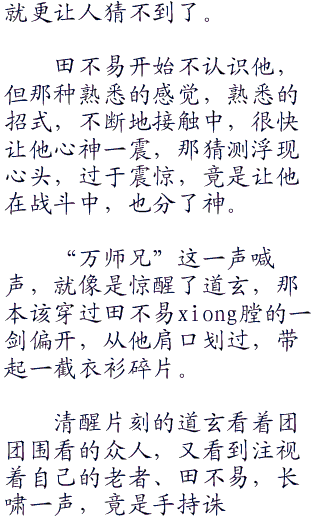 就更让人猜不到了。
田不易开始不认识他，
但那种熟悉的感觉，熟悉的
招式，不断地接触中，很快
让他心神一震，那猜测浮现
心头，过于震惊，竟是让他
在战斗中，也分了神。
“万师兄”这一声喊
声，就像是惊醒了道玄，那
本该穿过田不易xiong膛的一
剑偏开，从他肩口划过，带
起一截衣衫碎片。
清醒片刻的道玄看着团
团围看的众人，又看到注视
着自己的老者、田不易，长
啸一声，竟是手持诛